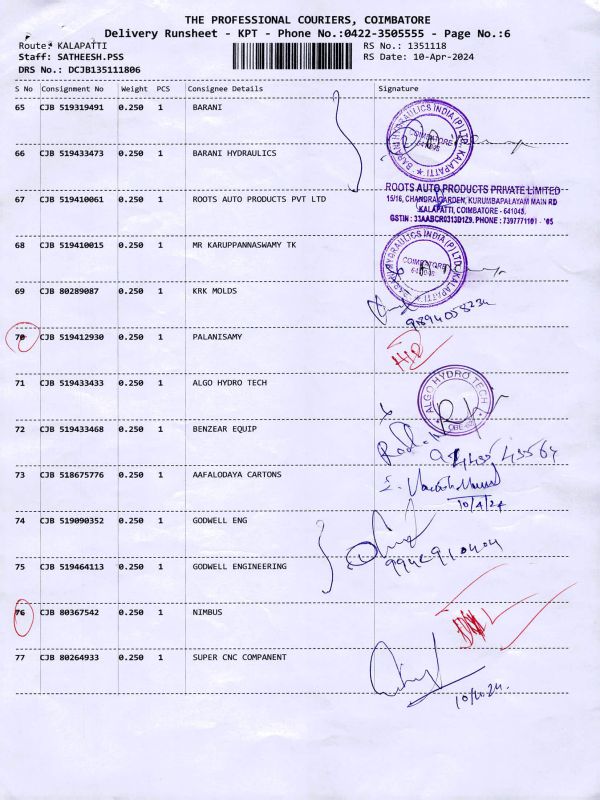 THE PROFESSIONAL COURIERS, COIMBATORE
Delivery Runsheet - KPT - Phone No.:0422-3505555 - Page No.:6
Route: KALAPATTI RS No.: 1351118
Staff: SATHEESH.PSS RS Date: 10-Apr-2024
DRS No.: DCJB135111806
S No Consignment No Weight PCS Consignee Details Signature
65 CJB 519319491 0.250 1 BARANI
BARANI HYDRAULICS INDIA (P) LTD. KALAPATTI COIMBATORE
66 CJB 519433473 0.250 1 BARANI HYDRAULICS
67 CJB 519410061 0.250 1 ROOTS AUTO PRODUCTS PVT LTD
ROOTS AUTO PRODUCTS PRIVATE LIMITED
15/16, CHANDRA GARDEN, KURUMBAPALAYAM MAIN RD
KALAPATTI, COIMBATORE - 641048.
GSTIN : 33AABCR0313D1Z9. PHONE : 7397771101 - '05
68 CJB 519410015 0.250 1 MR KARUPPANNASWAMY TK
HYDRAULICS INDIA (P) LTD. KALAPATTI COIMBATORE
69 CJB 80289087 0.250 1 KRK MOLDS
9894058234
70 CJB 519412930 0.250 1 PALANISAMY
71 CJB 519433433 0.250 1 ALGO HYDRO TECH
ALGO HYDRO TECH
72 CJB 519433468 0.250 1 BENZEAR EQUIP
73 CJB 518675776 0.250 1 AAFALODAYA CARTONS
10/4/24
74 CJB 519090352 0.250 1 GODWELL ENG
75 CJB 519464113 0.250 1 GODWELL ENGINEERING
76 CJB 80367542 0.250 1 NIMBUS
77 CJB 80264933 0.250 1 SUPER CNC COMPANENT